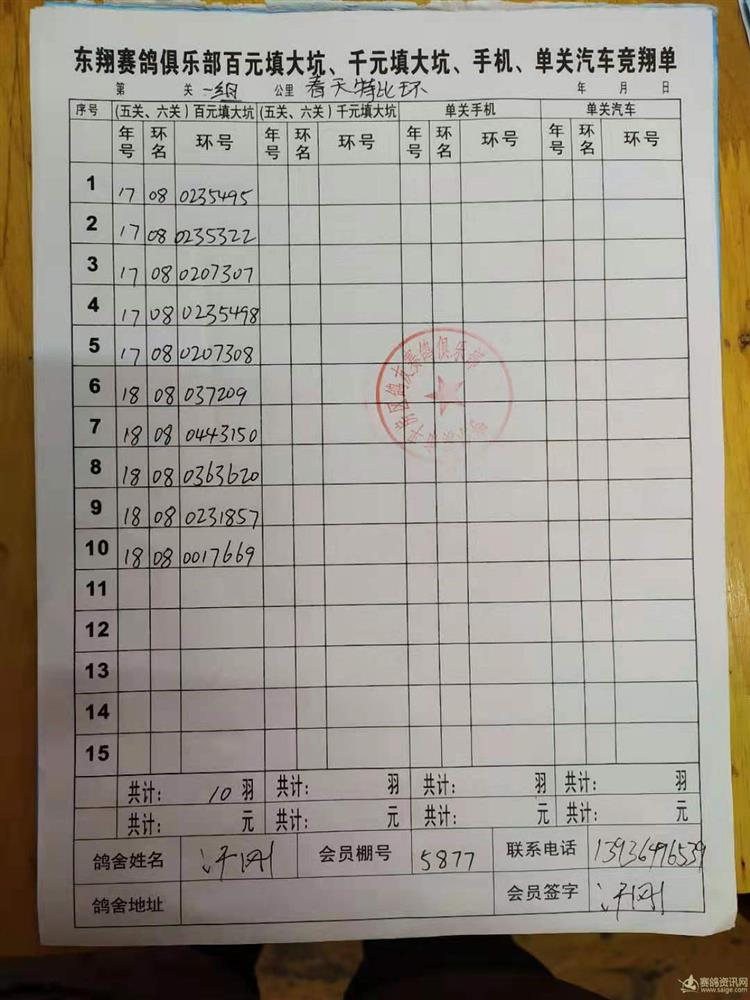 东翔赛鸽俱乐部百元填大坑、千元填大坑、手机、单关汽车竞翔单
第 关 一组 公里 春天特比环 年 月 日
序号 (五关、六关)百元填大坑 (五关、六关)千元填大坑 单关手机 单关汽车
年号 环名 环号 年号 环名 环号 年号 环名 环号 年号 环名 环号
1 17 08 0235495
2 17 08 0235322
3 17 08 0207307
4 17 08 0235498
5 17 08 0207308
6 18 08 037209
7 18 08 0443150
8 18 08 0363620
9 18 08 0231857
10 18 08 0017669
11
12
13
14
15
共计: 10 羽 共计: 羽 共计: 羽 共计: 羽
共计: 元 共计: 元 共计: 元 共计: 元
鸽舍姓名 会员棚号 5877 联系电话 13936496539
鸽舍地址 会员签字
赛鸽俱乐部
赛鸽资讯网
www.saige.com